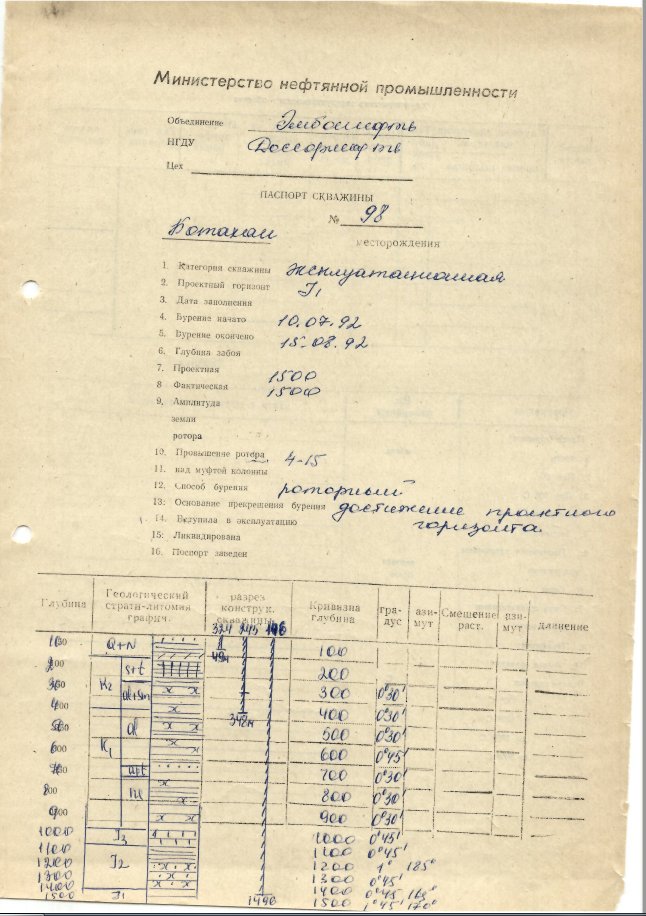 Министерство нефтянной промышленности
Объединение Эмбанефть
НГДУ Доссорнефть
Цех
ПАСПОРТ СКВАЖИНЫ
№ 98
Ботахан месторождения
1. Категория скважины эксплуатационная
2. Проектный горизонт J1
3. Дата заполнения
4. Бурение начато 10.07.92
5. Бурение окончено 15.08.92
6. Глубина забоя
7. Проектная 1500
8 Фактическая 1500
9. Амплитуда
земли
ротора
10. Провышение ротора 4-15
11. над муфтой колонны
12. Способ бурения роторный
13: Основание прекрешения бурения достижение проектного
14. Вступила в эксплуатацию горизонта
15: Ликвидирована
16. Поспорт заведен
Глубина Геологический страти-литомия график. разрез конструк. скважины Кривизна глубина гра-дус ази-мут Смешение раст. ази-мут длинение
324 245 146
100 Q+N 100
49м
200 s+t 200
300 K2 al+sm 300 0°30'
400 400 0°30'
342м
500 al 500 0°30'
600 K1 600 0°45'
700 apt 700 0°30'
800 ne 800 0°30'
900 900 0°30'
1000 J3 1000 0°45'
1100 1100 0°45'
1200 J2 1200 1° 185°
1300 1300 0°45'
1400 1400 0°45'
1500 J1 1496 1500 1°45' 170°